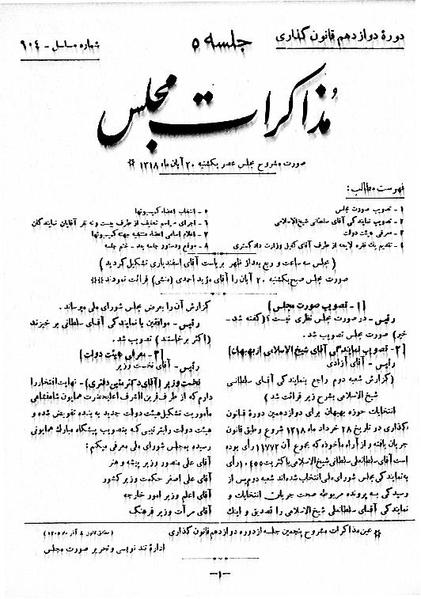 دورهٔ دوازدهم قانون گذاری
جلسه ۵
شماره مسلسل - ۹۰۴
مذاکرات مجلس
صورت مشروح مجلس عصر یکشنبه ۲۰ آبان ماه ۱۳۱۸
فهرست مطالب:
۱ - تصویب صورت مجلس
۲ - تصویب نمایندگی آقای سلطانی شیخ‌الاسلامی
۳ - معرفی هیئت دولت
۴ - تقدیم یک فقره لایحه از طرف آقای کفیل وزارت دادگستری
۵ - انتخاب اعضاء کمیسیونها
۶ - اجرای مراسم تحلیف از طرف بیست و نه نفر آقایان نمایندگان
۷ - اعلام اسامی اعضاء منتخبه جهة کمیسیونها
۸ - موقع و دستور جلسه بعد - ختم جلسه
(مجلس سه ساعت و ربع بعد از ظهر بریاست آقای اسفندیاری تشکیل گردید)
صورت مجلس صبح یکشنبه ۲۰ آبان را آقای مؤید احمدی (منشی) قرائت نمودند
[۱ - تصویب صورت مجلس]
رئیس - در صورت مجلس نظری نیست؟ (گفته شد -
خیر) صورت مجلس تصویب شد.
[۲ - تصویب نمایندگی آقای شیخ الاسلامی از بهبهان]
رئیس - آقای آزادی
(گزارش شعبه دوم راجع بنمایندگی آقای سلطانی
شیخ‌الاسلامی بشرح زیر قرائت شد)
انتخابات حوزه بهبهان برای دوازدهمین دورهٔ قانون
گذاری در تاریخ ۲۸ خرداد ماه ۱۳۱۸ شروع و طبق قانون
جریان یافته و از آراء مأخوذه که بجمع آن ۱۱۷۷۲ بوده
است آقای سلطانعلی سلطانی شیخ‌الاسلامی با کثریت رأی
به نمایندگی مجلس شورای ملی انتخاب شده‌اند شعبه دوم پس از
رسیدگی به پرونده مربوطه صحت جریان انتخابات و
نمایندگی آقای سلطانعلی شیخ‌الاسلامی را تصدیق و اینک
گزارش آن را بعرض مجلس شورای ملی میرساند.
رئیس - موافقین با نمایندگی آقای سلطانی برخیزند
(اکثر برخاستند) تصویب شد.
[۳ - معرفی هیئت دولت]
رئیس - آقای نخست وزیر
نخست وزیر (آقای دکتر متین دفتری) - نهایت افتخار را
دارم که از طرف قرین الشرف اعلیحضرت همایون شاهنشاهی
مأموریت تشکیل هیئت دولت جدید به بنده تفویض شده و
هیئت دولت را بترتیبی که بتصویب پیشگاه مبارک همایونی
رسیده به مجلس شورای ملی معرفی میکنم:
آقای علی منصور وزیر پیشه و هنر
آقای علی اصغر حکمت وزیر کشور
آقای اعلم وزیر امور خارجه
آقای مرآت وزیر فرهنگ
عین مذاکرات مشروح پنجمین جلسه از دوره دوازدهم قانون گذاری
اداره تند نویسی و تحریر صورت مجلس
- ۱ -